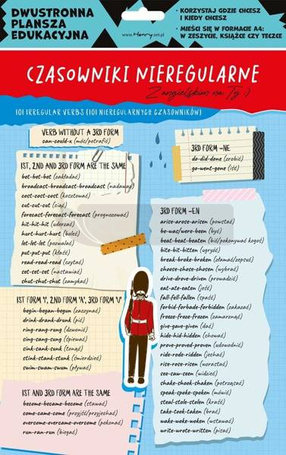 DWUSTRONNA
PLANSZA
EDUKACYJNA
• KORZYSTAJ GDZIE CHCESZ
I KIEDY CHCESZ
• MIEŚCI SIĘ W FORMACIE A4:
W ZESZYCIE, KSIĄŻCE CZY TECZCE
CZASOWNIKI NIEREGULARNE
Z angielskim na Ty :)
101 IRREGULAR VERBS (101 NIEREGULARNYCH CZASOWNIKÓW)
VERB WITHOUT A 3RD FORM
can-could-x (móc/potrafić)
1ST, 2ND AND 3RD FORM ARE THE SAME
bet-bet-bet (zakładać)
broadcast-broadcast-broadcast (nadawać)
cost-cost-cost (kosztować)
cut-cut-cut (ciąć)
forecast-forecast-forecast (prognozować)
hit-hit-hit (uderzać)
hurt-hurt-hurt (boleć)
let-let-let (pozwalać)
put-put-put (kłaść)
read-read-read (czytać)
set-set-set (nastawiać)
shut-shut-shut (zamykać)
1ST FORM 'I', 2ND FORM 'A', 3RD FORM 'U'
begin-began-begun (zaczynać)
drink-drank-drunk (pić)
ring-rang-rung (dzwonić)
sing-sang-sung (śpiewać)
sink-sank-sunk (tonąć)
stink-stank-stunk (śmierdzieć)
swim-swam-swum (pływać)
1ST AND 3RD FORM ARE THE SAME
become-became-become (stawać)
come-came-come (przyjść/przyjechać)
overcome-overcame-overcome (pokonać)
run-ran-run (biegać)
3RD FORM -NE
do-did-done (zrobić)
go-went-gone (iść)
3RD FORM -EN
arise-arose-arisen (powstać)
be-was/were-been (być)
beat-beat-beaten (bić/pokonywać kogoś)
bite-bit-bitten (ugryźć)
break-broke-broken (złamać/zepsuć)
choose-chose-chosen (wybierać)
drive-drove-driven (prowadzić)
eat-ate-eaten (jeść)
fall-fell-fallen (spaść)
forbid-forbade-forbidden (zakazać)
freeze-froze-frozen (zamarzać)
give-gave-given (dać)
hide-hid-hidden (chować)
prove-proved-proven (udowodnić)
ride-rode-ridden (jechać)
rise-rose-risen (wzrastać)
see-saw-seen (widzieć)
shake-shook-shaken (potrząsać)
speak-spoke-spoken (mówić)
steal-stole-stolen (kraść)
take-took-taken (brać)
wake-woke-woken (wstawać)
write-wrote-written (pisać)